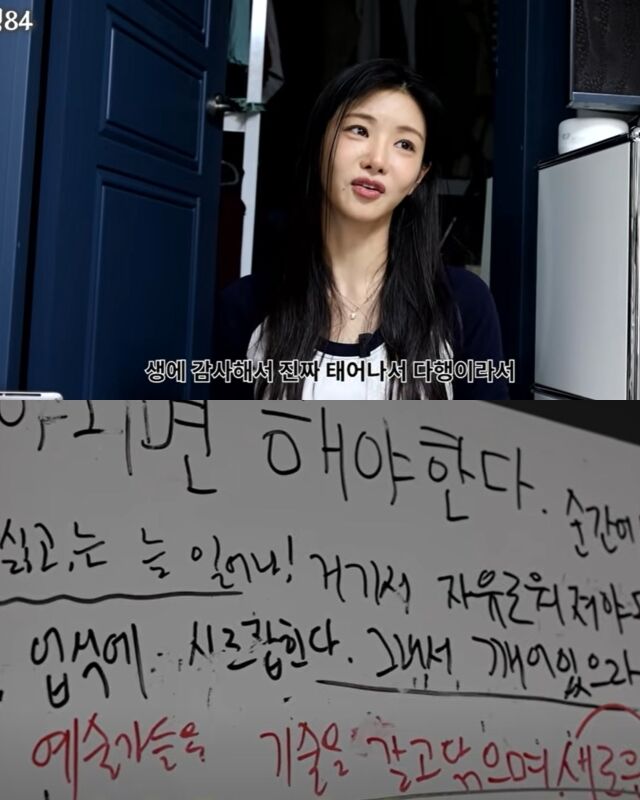 84
생에 감사해서 진짜 태어나서 다행이라서
되면 해야한다.
순간이
싫고,는 늘 일어나! 거기서 자유로워져야
업식에. 사로잡힌다. 그래서 깨어있으라
예술가들은 기술을 갈고닦으며 새로운